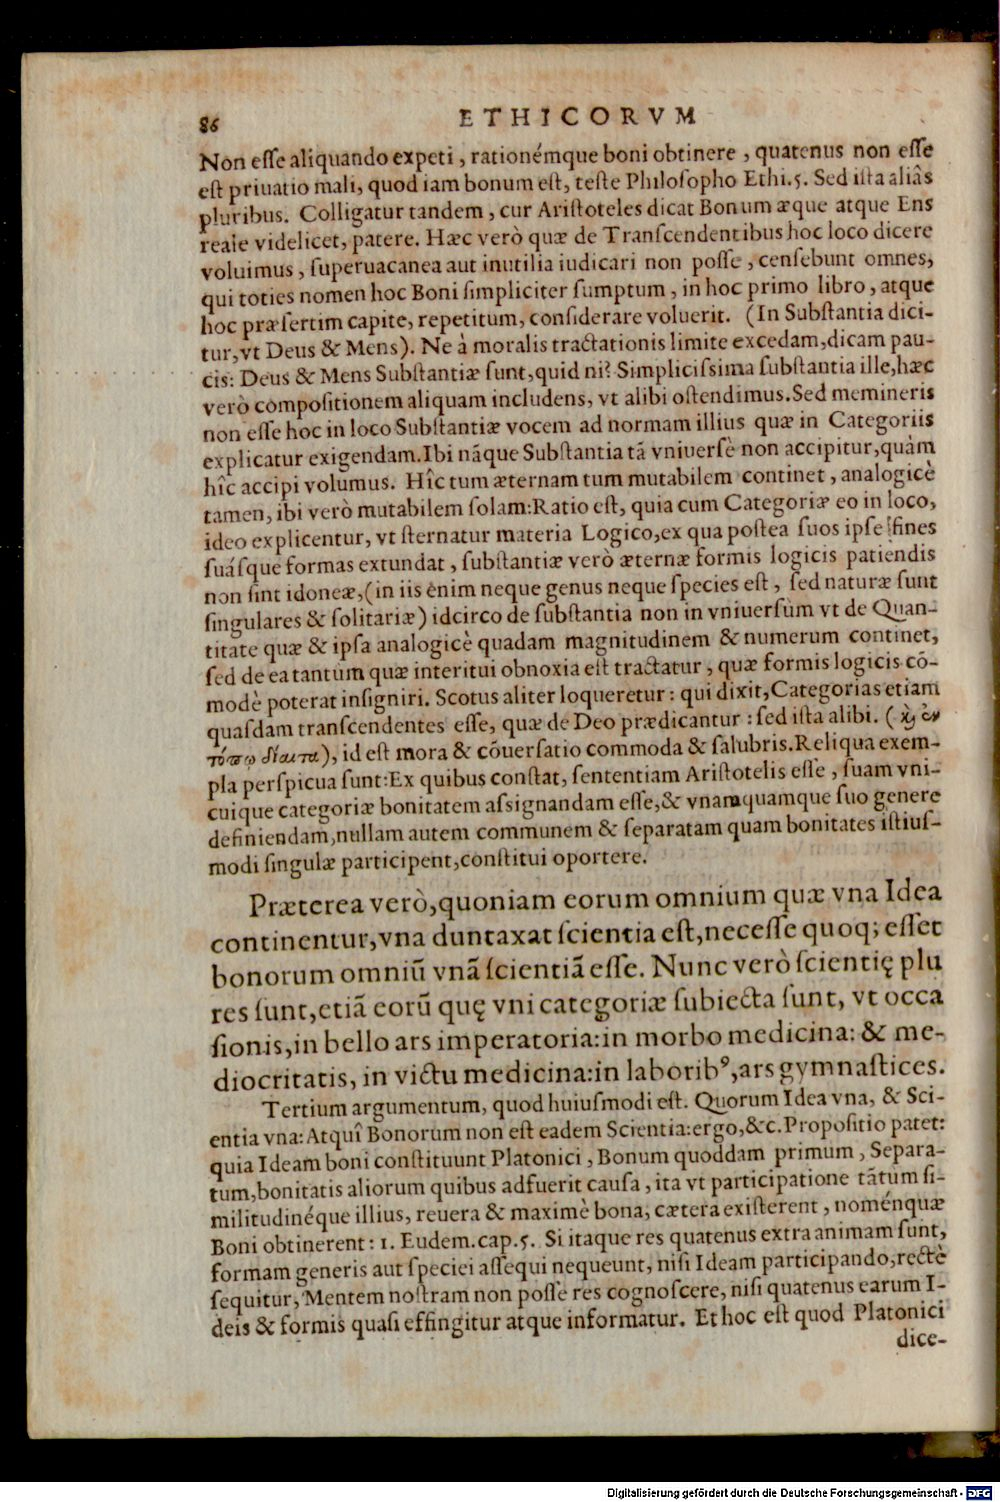 86 ETHICORVM
Non eſſe aliquando expeti, rationémque boni obtinere, quatenus non eſſe
eſt priuatio mali, quod iam bonum eſt, teſte Philoſopho Ethi.5. Sed iſta aliâs
pluribus. Colligatur tandem, cur Ariſtoteles dicat Bonum æque atque Ens
reale videlicet, patere. Hæc verò quæ de Tranſcendentibus hoc loco dicere
voluimus, ſuperuacanea aut inutilia iudicari non poſſe, cenſebunt omnes,
qui toties nomen hoc Boni ſimpliciter ſumptum, in hoc primo libro, atque
hoc præſertim capite, repetitum, conſiderare voluerit. (In Subſtantia dici-
tur, vt Deus & Mens). Ne à moralis tractationis limite excedam, dicam pau-
cis: Deus & Mens Subſtantiæ ſunt, quid ni? Simpliciſsima ſubſtantia ille, hæc
verò compoſitionem aliquam includens, vt alibi oſtendimus. Sed memineris
non eſſe hoc in loco Subſtantiæ vocem ad normam illius quæ in Categoriis
explicatur exigendam. Ibi nãque Subſtantia tã vniuerſè non accipitur, quàm
hîc accipi volumus. Hîc tum æternam tum mutabilem continet, analogicè
tamen, ibi verò mutabilem ſolam: Ratio eſt, quia cum Categoriæ eo in loco,
ideo explicentur, vt ſternatur materia Logico, ex qua poſtea ſuos ipſe fines
ſuáſque formas extundat, ſubſtantiæ verò æternæ formis logicis patiendis
non ſint idoneæ, (in iis enim neque genus neque ſpecies eſt, ſed naturæ ſunt
ſingulares & ſolitariæ) idcirco de ſubſtantia non in vniuerſùm vt de Quan-
titate quæ & ipſa analogicè quadam magnitudinem & numerum continet,
ſed de ea tantùm quæ interitui obnoxia eſt tractatur, quæ formis logicis cõ-
modè poterat inſigniri. Scotus aliter loqueretur: qui dixit, Categorias etiam
quaſdam tranſcendentes eſſe, quæ de Deo prædicantur: ſed iſta alibi. (ϗ̀ ἐν
τόπῳ δίαιτα), id eſt mora & cõuerſatio commoda & ſalubris. Reliqua exem-
pla perſpicua ſunt: Ex quibus conſtat, ſententiam Ariſtotelis eſſe, ſuam vni-
cuique categoriæ bonitatem aſsignandam eſſe, & vnamquamque ſuo genere
definiendam, nullam autem communem & ſeparatam quam bonitates iſtiuſ-
modi ſingulæ participent, conſtitui oportere.
Præterea verò, quoniam eorum omnium quæ vna Idea
continentur, vna duntaxat ſcientia eſt, neceſſe quoq; eſſet
bonorum omniũ vnã ſcientiã eſſe. Nunc verò ſcientię plu
res ſunt, etiã eorũ quę vni categoriæ ſubiecta ſunt, vt occa
ſionis, in bello ars imperatoria: in morbo medicina: & me-
diocritatis, in victu medicina: in laboribꝰ, ars gymnaſtices.
Tertium argumentum, quod huiuſmodi eſt. Quorum Idea vna, & Sci-
entia vna: Atquî Bonorum non eſt eadem Scientia: ergo, &c. Propoſitio patet:
quia Ideam boni conſtituunt Platonici, Bonum quoddam primum, Separa-
tum, bonitatis aliorum quibus adfuerit cauſa, ita vt participatione tãtum ſi-
militudinéque illius, reuera & maximè bona, cætera exiſterent, noménquæ
Boni obtinerent: 1. Eudem. cap. 5. Si itaque res quatenus extra animam ſunt,
formam generis aut ſpeciei aſſequi nequeunt, niſi Ideam participando, rectè
ſequitur, Mentem noſtram non poſſe res cognoſcere, niſi quatenus earum I-
deis & formis quaſi effingitur atque informatur. Et hoc eſt quod Platonici
dice-
Digitalisierung gefördert durch die Deutsche Forschungsgemeinschaft - DFG